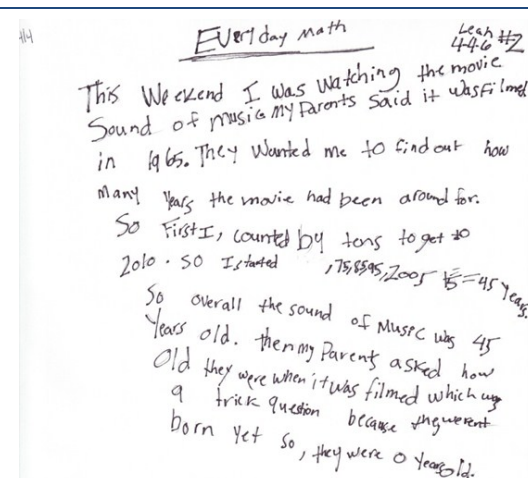 4/4
Everyday Math
Leah
4-4-6 #2
This Weekend I was watching the movie
Sound of music my Parents said it was filmed
in 1965. They Wanted me to find out how
many Years the movie had been around for.
So First I, counted by tens to get to
2010. So I started ,75,85,95,2005 = 45 Years.
So overall the sound of Music was 45
Years old. then my Parents asked how
Old they were when it was filmed which was
a trick question because they werent
born yet so, they were 0 Years old.